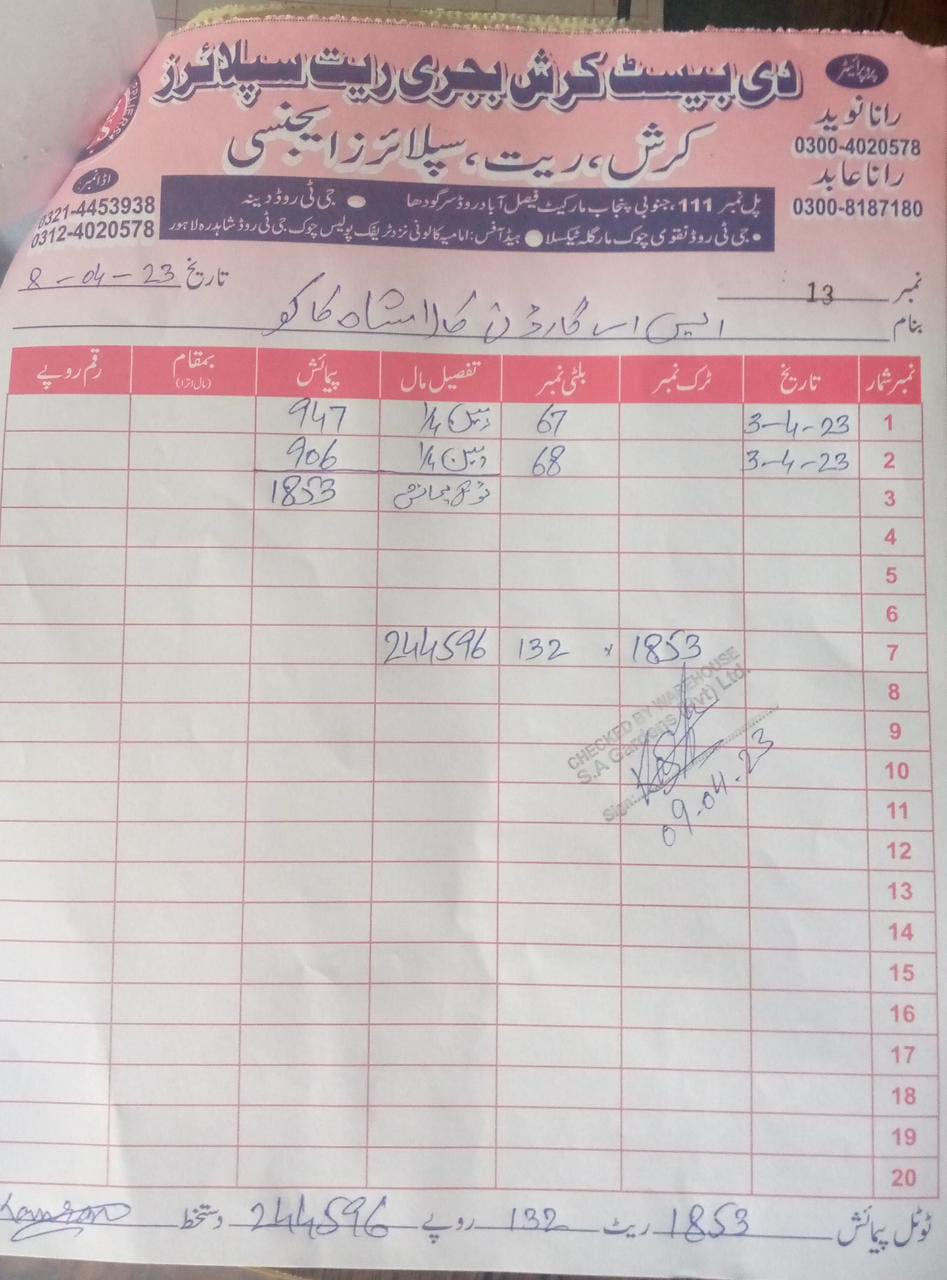 دی بیسٹ کرش بجری ریت سپلائرز
پروپرائیٹر
کرش، ریت، سپلائرز ایجنسی
رانا نوید
0300-4020578
رانا عابد
0300-8187180
اڈا نمبر:
0321-4453938
0312-4020578
پل نمبر 111، جنوبی پنجاب مارکیٹ فیصل آباد روڈ سرگودھا ● جی ٹی روڈ دینہ
• جی ٹی روڈ نقوی چوک مارگلہ ٹیکسلا ● ہیڈ آفس: امامیہ کالونی نزد ٹریفک پولیس چوک جی ٹی روڈ شاہدرہ لاہور
نمبر 13 تاریخ 8-04-23
بنام ایس اے گارڈن کالا شاہ کاکو
نمبر شمار تاریخ ٹرک نمبر بلٹی نمبر تفصیل مال پیمائش بمقام (مال اترا) رقم روپے
1 3-4-23 67 1/4 947
2 3-4-23 68 1/4 906
3 ٹوٹل پیمائش 1853
4
5
6
7 1853 × 132 244596
8
9
10
11
12
13
14
15
16
17
18
19
20
CHECKED BY WAREHOUSE
S.A Gardens (Pvt) Ltd.
Sign:
09-04-23
ٹوٹل پیمائش 1853 ریٹ 132 روپے 244596 دستخط